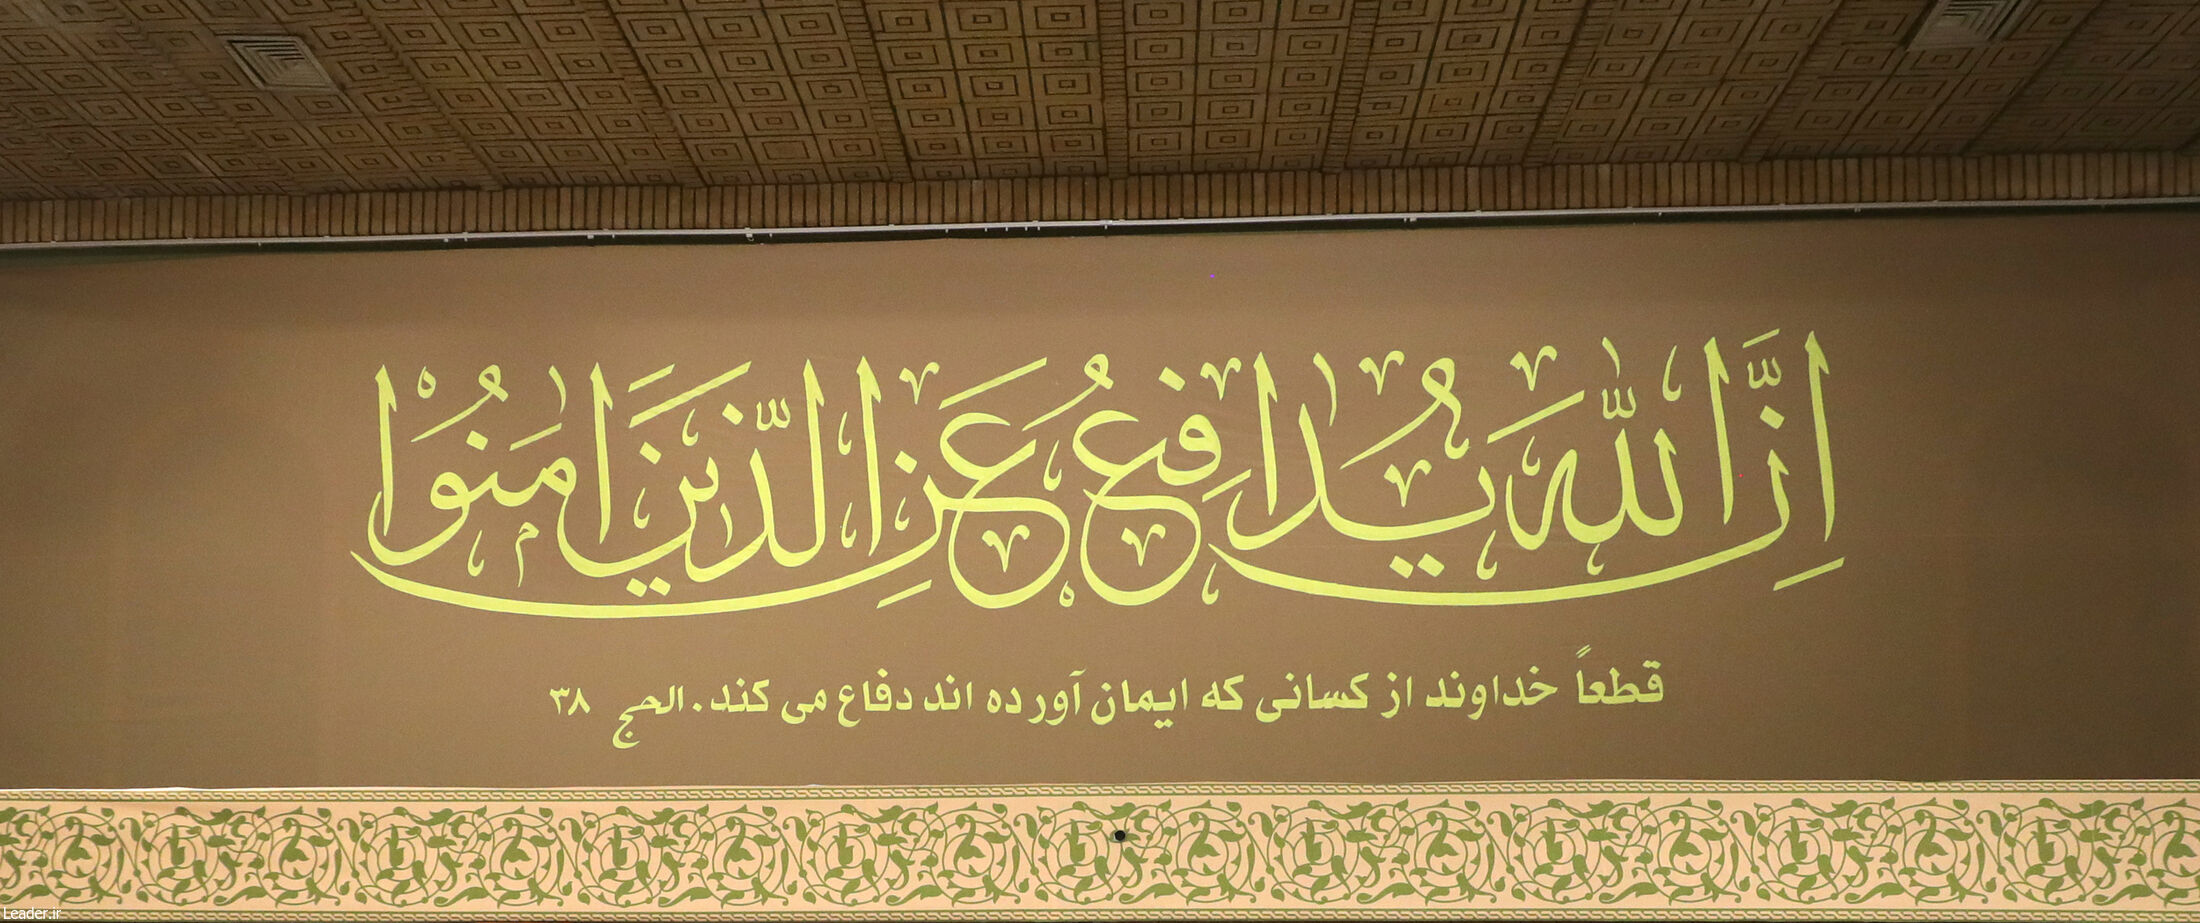 اِنَّ اللّٰهَ يُدافِعُ عَنِ الَّذينَ امَنُوا
قطعاً خداوند از کسانی که ایمان آورده اند دفاع می کند. الحج ۳۸
Leader.ir